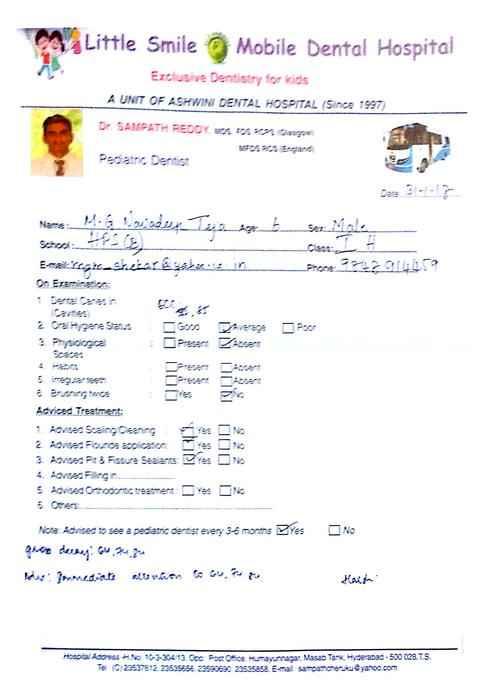 Little Smile Mobile Dental Hospital
Exclusive Dentistry for kids
A UNIT OF ASHWINI DENTAL HOSPITAL (Since 1997)
Dr. SAMPATH REDDY, MDS, FDS RCPS (Glasgow)
MFDS RCS (England)
Pediatric Dentist
Date: 31-1-12
Name: M. G Navadeep Teja Age: 6 Sex: Male
School: HPS(B) Class: I H
E-mail: Phone:
On Examination:
1 Dental Caries in : ECC 85
(Cavities)
2. Oral Hygiene Status : Good Average Poor
3. Physiological : Present Absent
Spaces
4. Habits : Present Absent
5. Irregular teeth : Present Absent
6 Brushing twice : Yes No
Adviced Treatment:
1 Advised Scaling/Cleaning : Yes No
2. Advised Flouride application: Yes No
3. Advised Pit & Fissure Sealants: Yes No
4. Advised Filling in
5 Advised Orthodontic treatment : Yes No
6. Others:
Note: Advised to see a pediatric dentist every 3-6 months Yes No
gross decay: 64, 74, 84
Adv: Immediate attention to 64, 74 84
Hospital Address -H.No. 10-3-304/13, Opp. Post Office, Humayunnagar, Masab Tank, Hyderabad - 500 028,T.S.
Tel: (C) 23537812, 23535656, 23590690, 23535858, E-Mail : sampathcheruku@yahoo.com